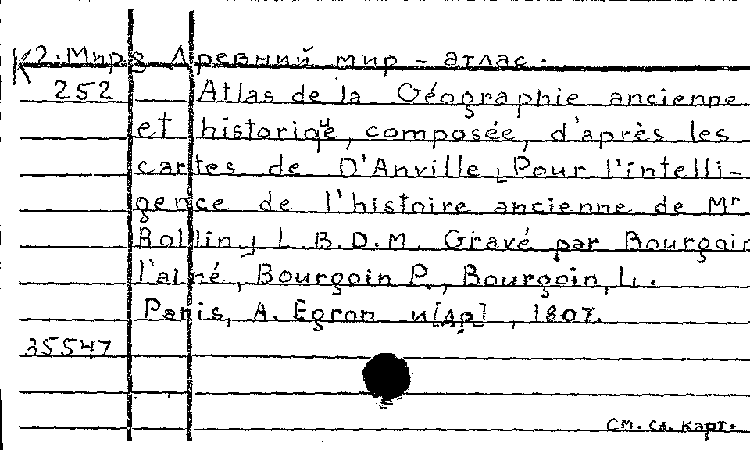 К2. Мира Древний мир - атлас.
252 Atlas de la Géographie ancienne
et historiqᵘe, composée, d'après les
cartes de D'Anville, Pour l'intelli-
gence de l'histoire ancienne de Mʳ
Rollin, L. B. D. M. Gravé par Bourgoin
l'aîné, Bourgoin P., Bourgoin, L.
Paris, A. Egron и [др], 1807.
35547
См. сл. карт.